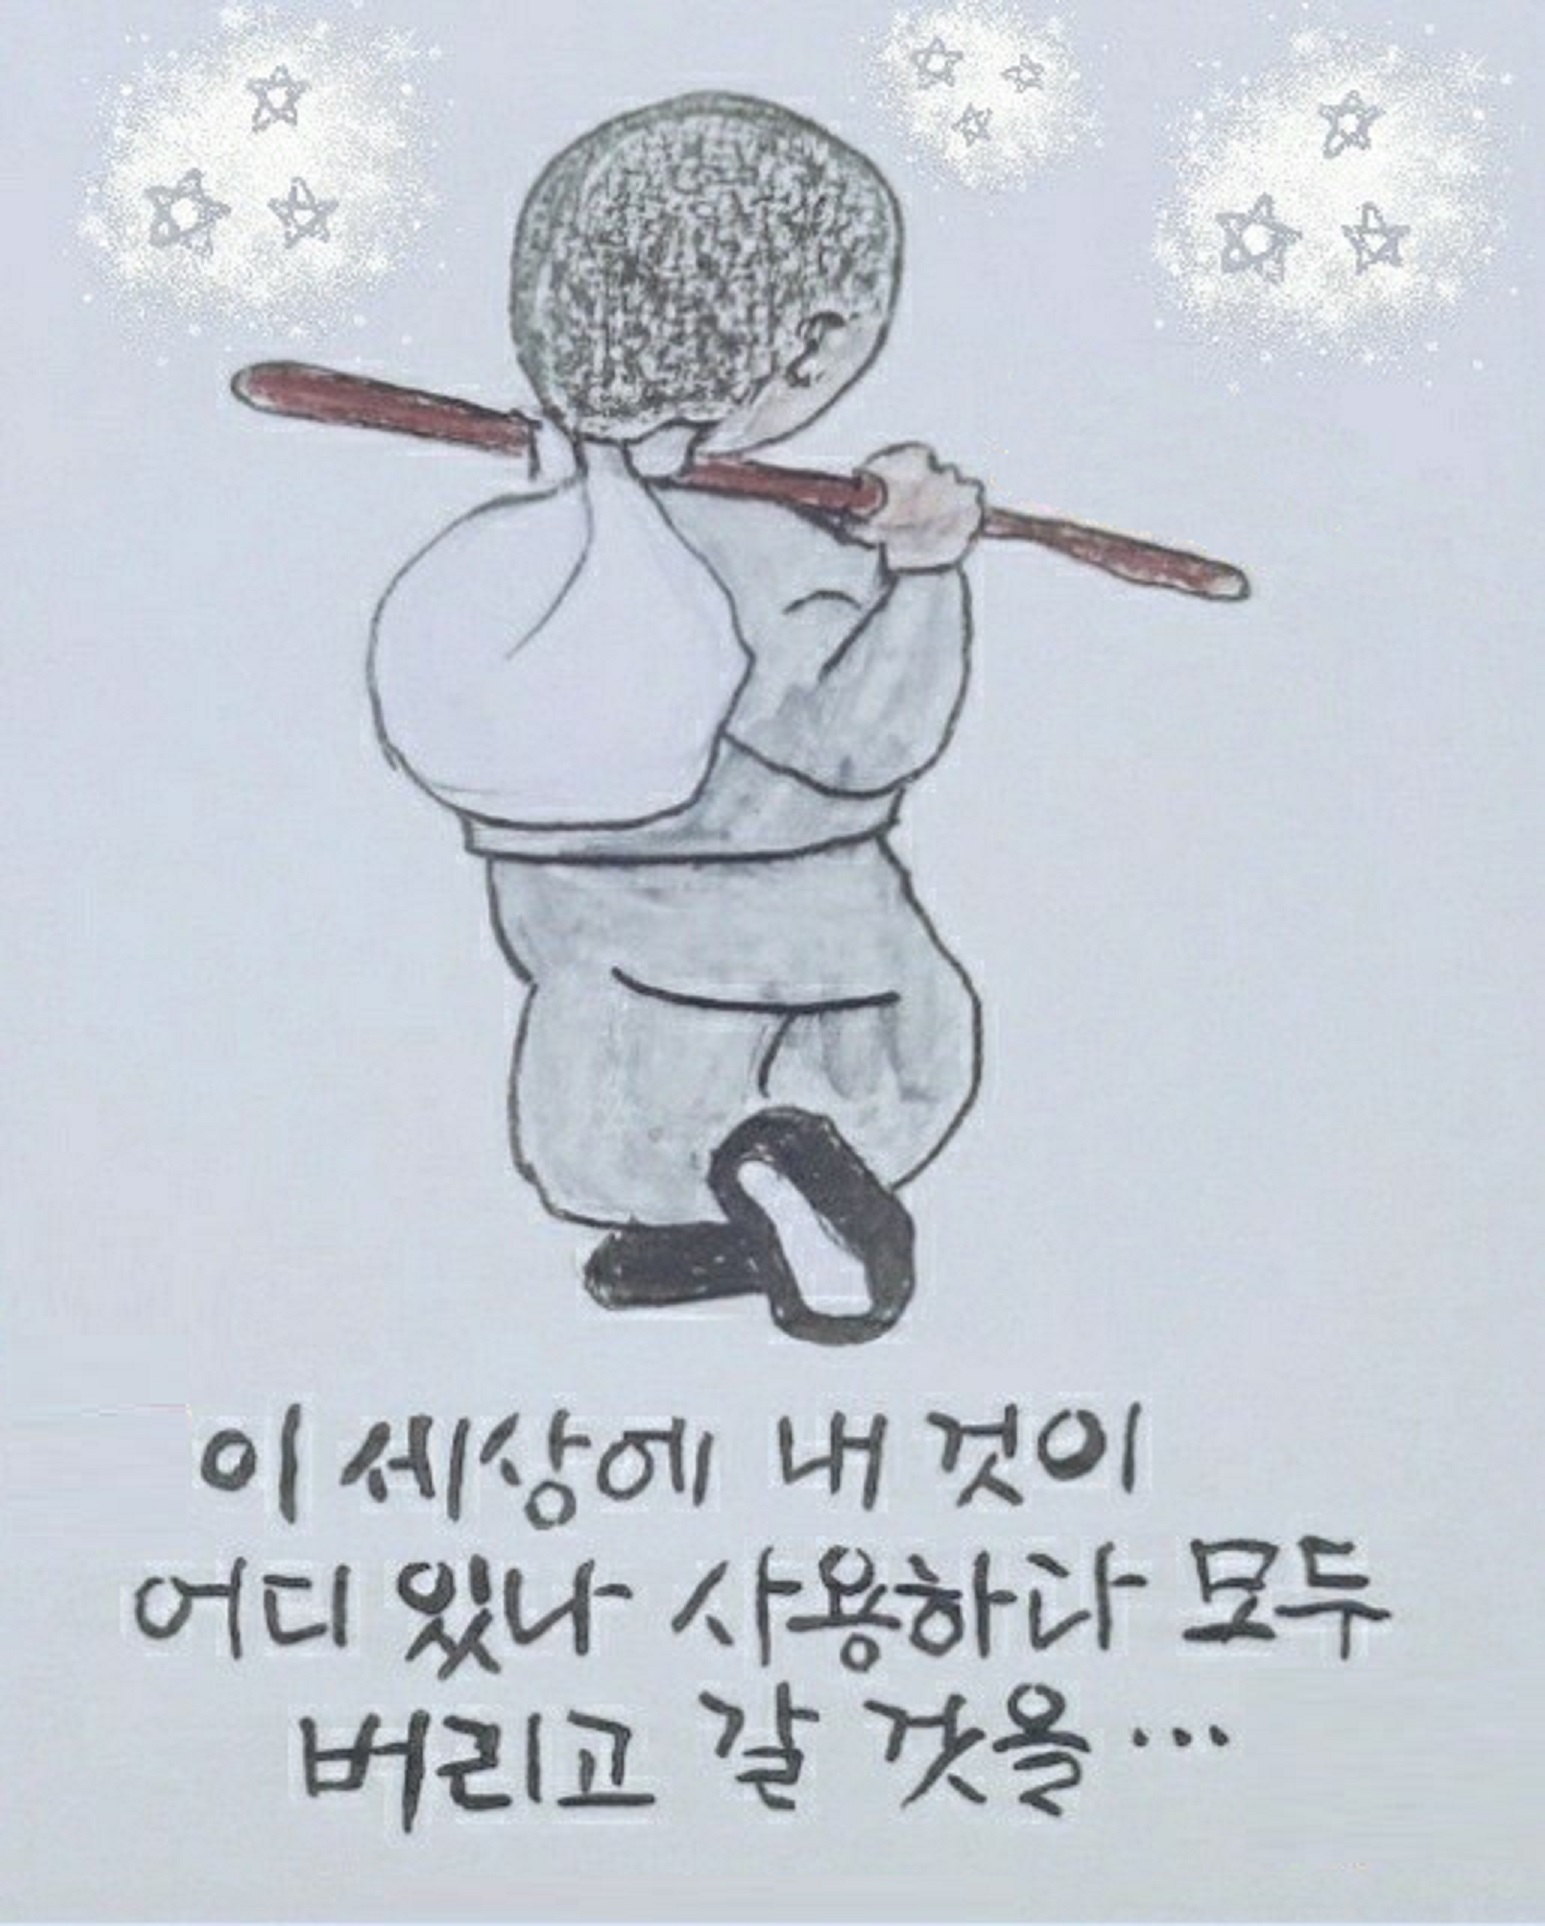 이 세상에 내 것이
어디 있나 사용하다 모두
버리고 갈 것을...